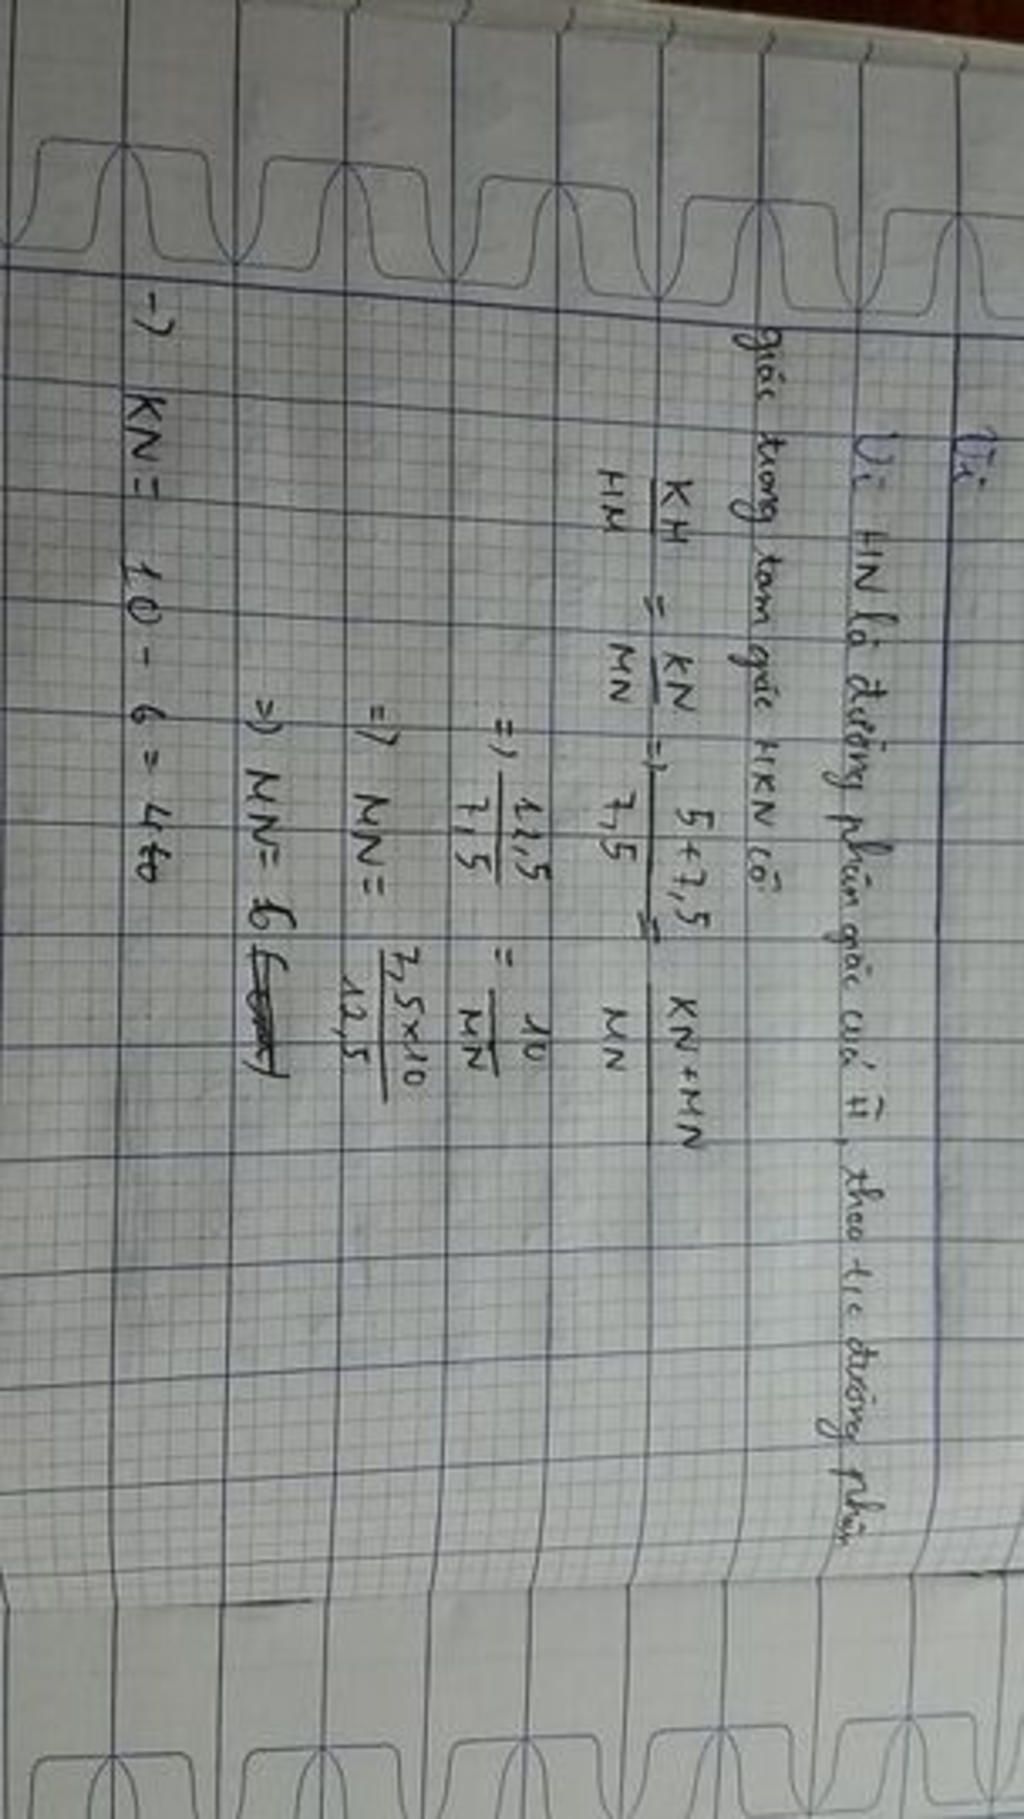 Vì
Vì HN là đường phân giác của H, theo t,c đường phân
giác trong tam giác HKN có
KH/HM = KN/MN => 5+7,5/7,5 = KN+MN/MN
=> 12,5/7,5 = 10/MN
=> MN = 7,5x10/12,5
=> MN = 6
-> KN = 10 - 6 = 4